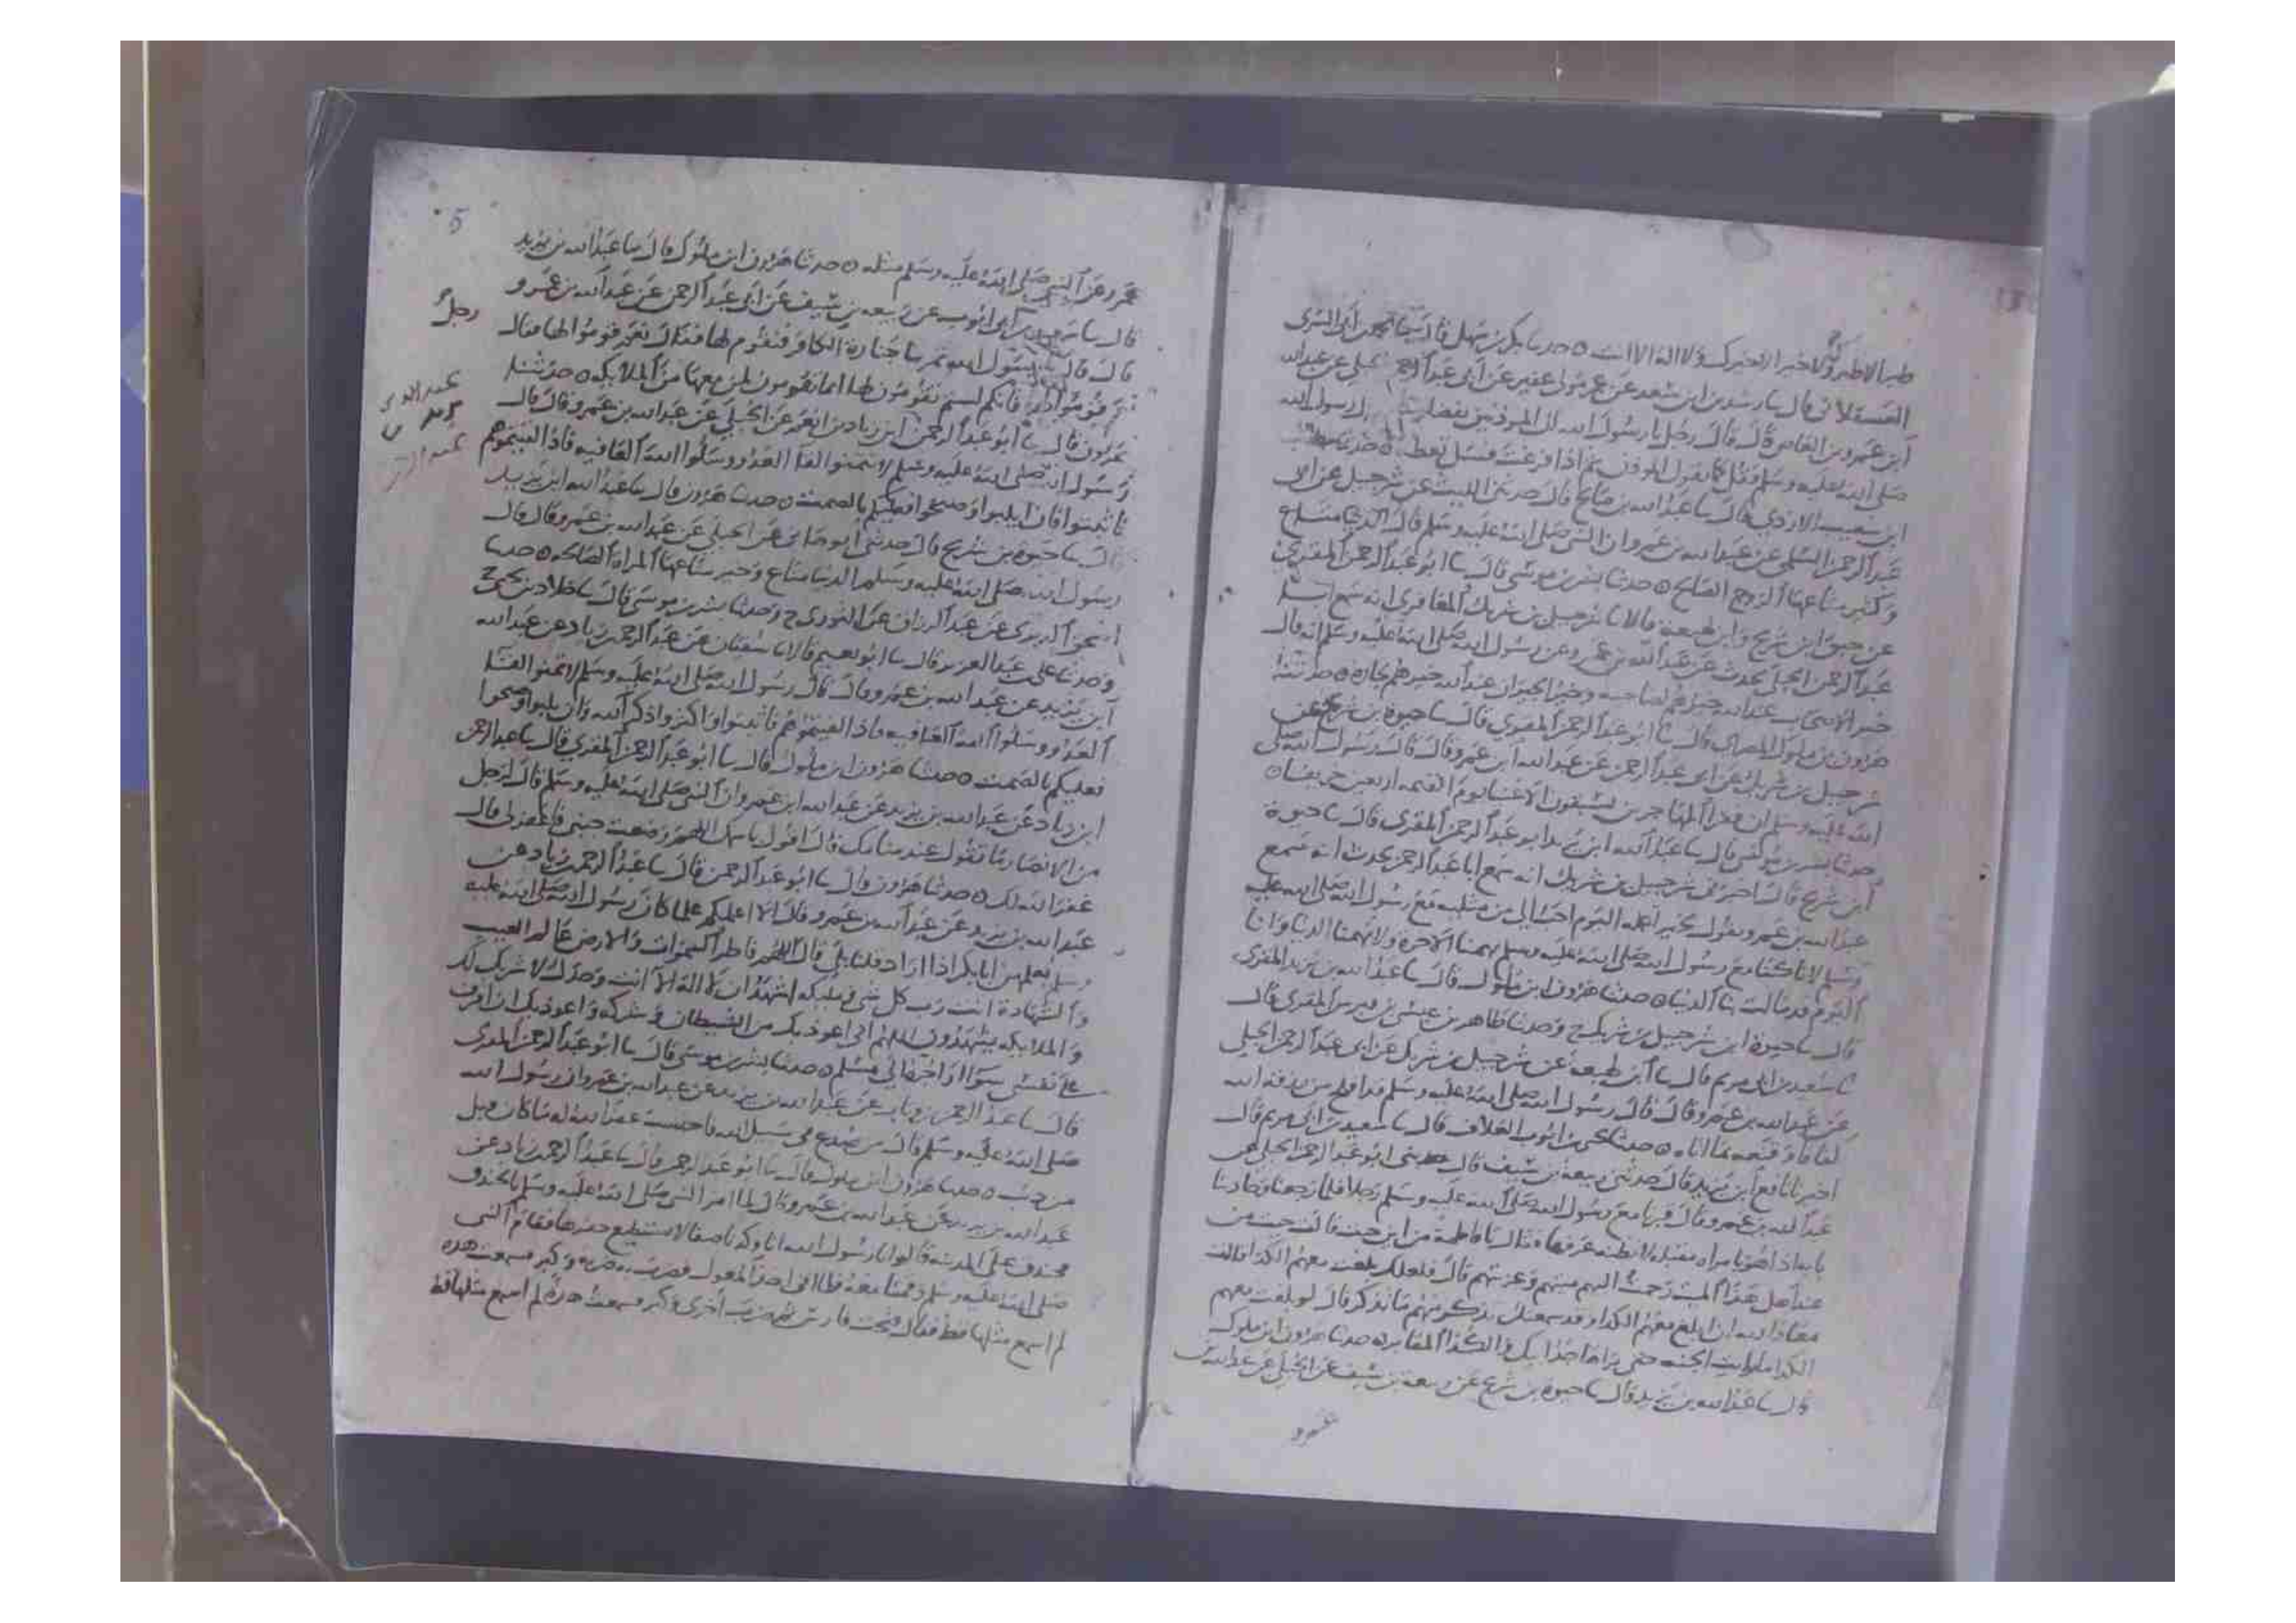 طير الا طيرك ولا خير الا خيرك ولا اله الا انت ه حدثنا بكر بن سهل قال نا محمد بن ابي السري
العسقلاني قال نا رشدين ابن سعد عن مولى غفير عن ابي عبد الرحمن الحبلي عن عبد الله
ابن عمرو بن العاص قال قال رجل يا رسول الله ان الموذنين يفضلوننا رسول الله
صلى الله عليه وسلم قل كما يقول الموذن ثم اذا فرغت فسل تعط ه حدثنا مطلب
ابن شعيب الازدي قال نا عبد الله بن صالح قال حدثني الليث عن شرحبيل عن ابي
عبد الرحمن السلمي عن عبد الله بن عمرو ان النبي صلى الله عليه وسلم قال الدنيا متاع
وخير متاعها الزوج الصالح ه حدثنا بشر بن موسى قال نا ابو عبد الرحمن المقري
عن حيوة ابن شريح وابن لهيعة قالا نا شرحبيل بن شريك المعافري انه سمع ابا
عبد الرحمن الحبلي يحدث عن عبد الله بن عمرو عن رسول الله صلى الله عليه وسلم انه قال
خير الاصحاب عند الله خيرهم لصاحبه وخير الجيران عند الله خيرهم لجاره ه حدثنا
هرون بن ملول المصري قال نا ابو عبد الرحمن المقري قال نا حيوة بن شريح عن
شرحبيل بن شريك عن ابي عبد الرحمن عن عبد الله ابن عمرو قال قال رسول الله صلى
الله عليه وسلم ان فقرا المهاجرين يسبقون الاغنيا يوم القيمه اربعين خريفا ه
حدثنا بشر بن موسى قال نا عبد الله ابن يزيد ابو عبد الرحمن المقري قال نا حيوة
ابن شريح قال اخبرني شرحبيل بن شريك انه سمع ابا عبد الرحمن يحدث انه سمع
عبد الله بن عمرو يقول لخير اعمله اليوم احب الي من مثليه مع رسول الله صلى الله عليه
وسلم لانا كنا مع رسول الله صلى الله عليه وسلم يهمنا الاخرة ولا تهمنا الدنيا وانا
اليوم قد مالت بنا الدنيا ه حدثنا هرون ابن ملول قال نا عبد الله بن يزيد المقري
قال نا حيوة ابن شرحبيل بن شريك ح وحدثنا طاهر بن عيسى بن قيرس المقري قال
نا سعيد بن ابي مريم قال نا ابن لهيعة عن شرحبيل بن شريك عن ابي عبد الرحمن الحبلي
عن عبد الله بن عمرو قال قال رسول الله صلى الله عليه وسلم قد افلح من رزقه الله
كفافا وقنعه بما اتاه ه حدثنا يحيى بن ايوب العلاف قال نا سعيد بن ابي مريم قال
اخبرنا نافع ابن يزيد قال حدثني ربيعة بن سيف قال حدثني ابو عبد الرحمن الحبلي عن
عبد الله بن عمرو قال قبرنا مع رسول الله صلى الله عليه وسلم رجلا فلما رجعنا وحاذينا
بابه اذا هو بامراه مقبله لا نظنه عرفها فقال يا فاطمة من اين جيت قالت جيت من
عند اهل هذا الميت رحمت اليهم ميتهم وعزيتهم قال فلعلك بلغت معهم الكدا قالت
معاذ الله ان ابلغ معهم الكدا وقد سمعتك تذكر منهم ما تذكر قال لو بلغت معهم
الكدا ما رايت الجنه حتى يراها جد ابيك والكدا المقابر ه حدثنا هرون ابن ملول
قال نا عبد الله بن يزيد قال نا حيوة بن شريح عن ربيعة بن سيف عن الحبلي عن عبد الله بن
عمرو
5
عمرو عن النبي صلى الله عليه وسلم مثله ه حدثنا هرون ابن ملول قال نا عبد الله بن يزيد
قال نا سعيد بن ابي ايوب عن ربيعه بن سيف عن ابي عبد الرحمن عن عبد الله بن عمرو
رجل
قال قال يا رسول الله تمر بنا جنازة الكافر فنقوم لها فقال نعم فقوموا لها فقال
قوموا لها فانكم لستم تقومون لها انما تقومون لمن معها من الملايكه ه حدثنا
هرون قال نا ابو عبد الرحمن ابن زياد بن انعم عن الحبلي عن عبد الله بن عمرو قال قال
رسول الله صلى الله عليه وسلم لا تتمنوا لقا العدو وسلوا الله العافيه فاذا لقيتموهم
فاثبتوا فان اجلبوا وصيحوا فعليكم بالصمت ه حدثنا هرون قال نا عبد الله ابن يزيد
قال نا حيوه بن شريح قال حدثني ابو هاني عن الحبلي عن عبد الله بن عمرو قال قال
رسول الله صلى الله عليه وسلم الدنيا متاع وخير متاعها المراه الصالحه ه حدثنا
اسحق الدبري عن عبد الرزاق عن الثوري ح وحدثنا بشر بن موسى قال نا خلاد بن يحيى ح
وحدثنا علي بن عبد العزيز قال نا ابو نعيم قالا نا سفيان عن عبد الرحمن بن زياد عن عبد الله
ابن يزيد عن عبد الله بن عمرو قال قال رسول الله صلى الله عليه وسلم لا تتمنوا لقا
العدو وسلوا الله العافيه فاذا لقيتموهم فاثبتوا واكثروا ذكر الله وان جلبوا وصيحوا
فعليكم بالصمت ه حدثنا هرون ابن ملول قال نا ابو عبد الرحمن المقري قال نا عبد الرحمن
ابن زياد عن عبد الله بن يزيد عن عبد الله ابن عمرو ان النبي صلى الله عليه وسلم قال لرجل
من الانصار ما تقول عند منامك قال اقول باسمك اللهم وضعت جنبي فاغفر لي قال
غفر الله لك ه حدثنا هرون قال نا ابو عبد الرحمن قال نا عبد الرحمن بن زياد عن
عبد الله بن يزيد عن عبد الله بن عمرو قال الا اعلمكم علما كان رسول الله صلى الله عليه
وسلم يعلمهن ابا بكر اذا اراد قلنا بلى قال اللهم فاطر السموات والارض عالم الغيب
والشهادة انت رب كل شي ومليكه اشهد ان لا اله الا انت وحدك لا شريك لك
والملايكه يشهدون اللهم اني اعوذ بك من الشيطان وشركه واعوذ بك ان اقترف
على نفسي سوا او اجره الى مسلم ه حدثنا بشر بن موسى قال نا ابو عبد الرحمن المقري
قال نا عبد الرحمن بن زياد عن عبد الله بن يزيد عن عبد الله بن عمرو ان رسول الله
صلى الله عليه وسلم قال من صدع في سبيل الله فاحتسب غفر الله له ما كان قبل
من ذنب ه حدثنا هرون ابن ملول قال نا ابو عبد الرحمن قال نا عبد الرحمن بن زياد عن
عبد الله بن يزيد عن عبد الله بن عمرو قال لما امر النبي صلى الله عليه وسلم بالخندق
فخندق على المدينه قالوا يا رسول الله انا وجدنا صفا لا نستطيع حفرها فقام النبي
صلى الله عليه وسلم وقمنا معه فلما اتى اخذ المعول فضرب به ضربه وكبر فسمعت هده
لم اسمع مثلها قط فقال فتحت فارس ثم ضرب اخرى وكبر فسمعت هدة لم اسمع مثلها قط